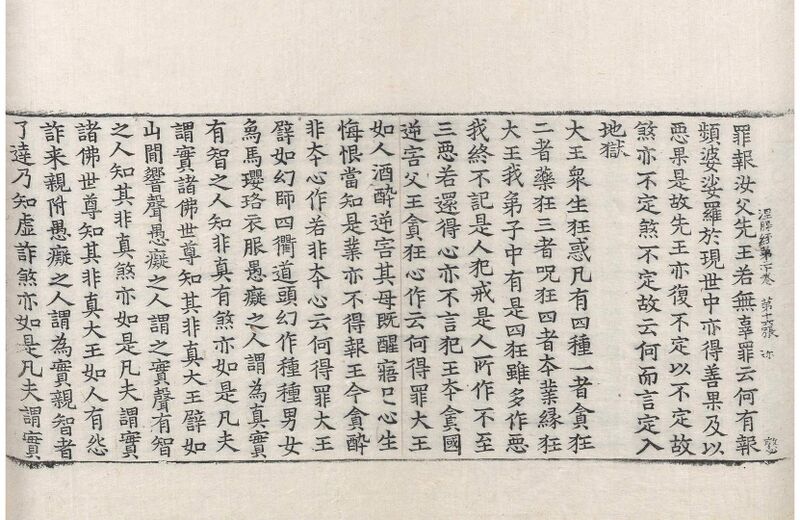 涅槃經第二十卷 第十張 弥
罪報汝父先王若無辜罪云何有報
頻婆娑羅於現世中亦得善果及以
惡果是故先王亦復不定以不定故
煞亦不定煞不定故云何而言定入
地獄
大王衆生狂惑凡有四種一者貪狂
二者藥狂三者呪狂四者夲業緣狂
大王我弟子中有是四狂雖多作惡
我終不記是人犯戒是人所作不至
三惡若還得心亦不言犯王夲貪國
逆害父王貪狂心作云何得罪大王
如人酒醉逆害其母既醒寤已心生
悔恨當知是業亦不得報王今貪醉
非夲心作若非夲心云何得罪大王
譬如幻師四衢道頭幻作種種男女
象馬瓔珞衣服愚癡之人謂為真實
有智之人知非真有煞亦如是凡夫
謂實諸佛世尊知其非真大王譬如
山間響聲愚癡之人謂之實聲有智
之人知其非真煞亦如是凡夫謂實
諸佛世尊知其非真大王如人有怨
詐来親附愚癡之人謂為實親智者
了達乃知虛詐煞亦如是凡夫謂實